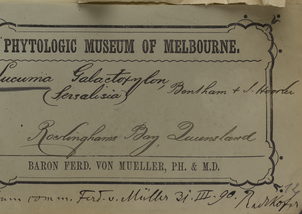 PHYTOLOGIC MUSEUM OF MELBOURNE.
Lucuma Galactoxylon,
(Sersalisia) Bentham & J. Hooker
Rockinghams Bay, Queensland
BARON FERD. VON MUELLER, PH. & M.D.
comm. Ferd. v. Müller 31. III. 90.
Radlkofer